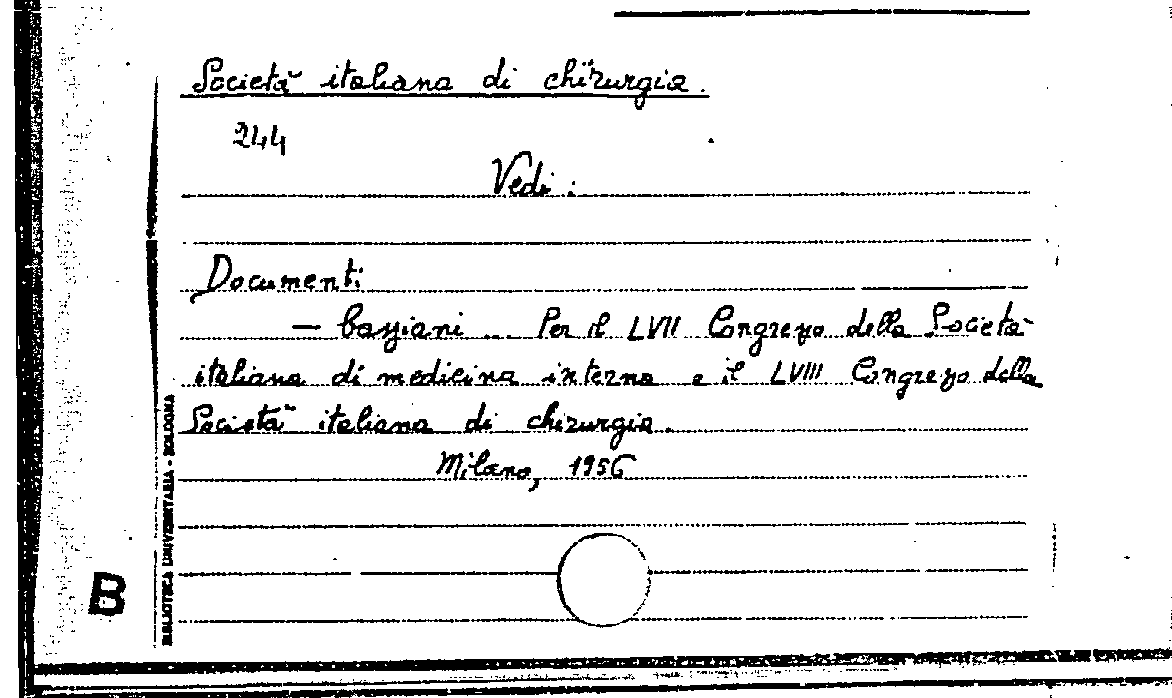 Società italiana di chirurgia.
244
Vedi:
Documenti
— bassiani ... Per il LVII Congresso della Società
italiana di medicina interna e il LVIII Congresso della
Società italiana di chirurgia.
Milano, 1956
BIBLIOTECA UNIVERSITARIA - BOLOGNA
B